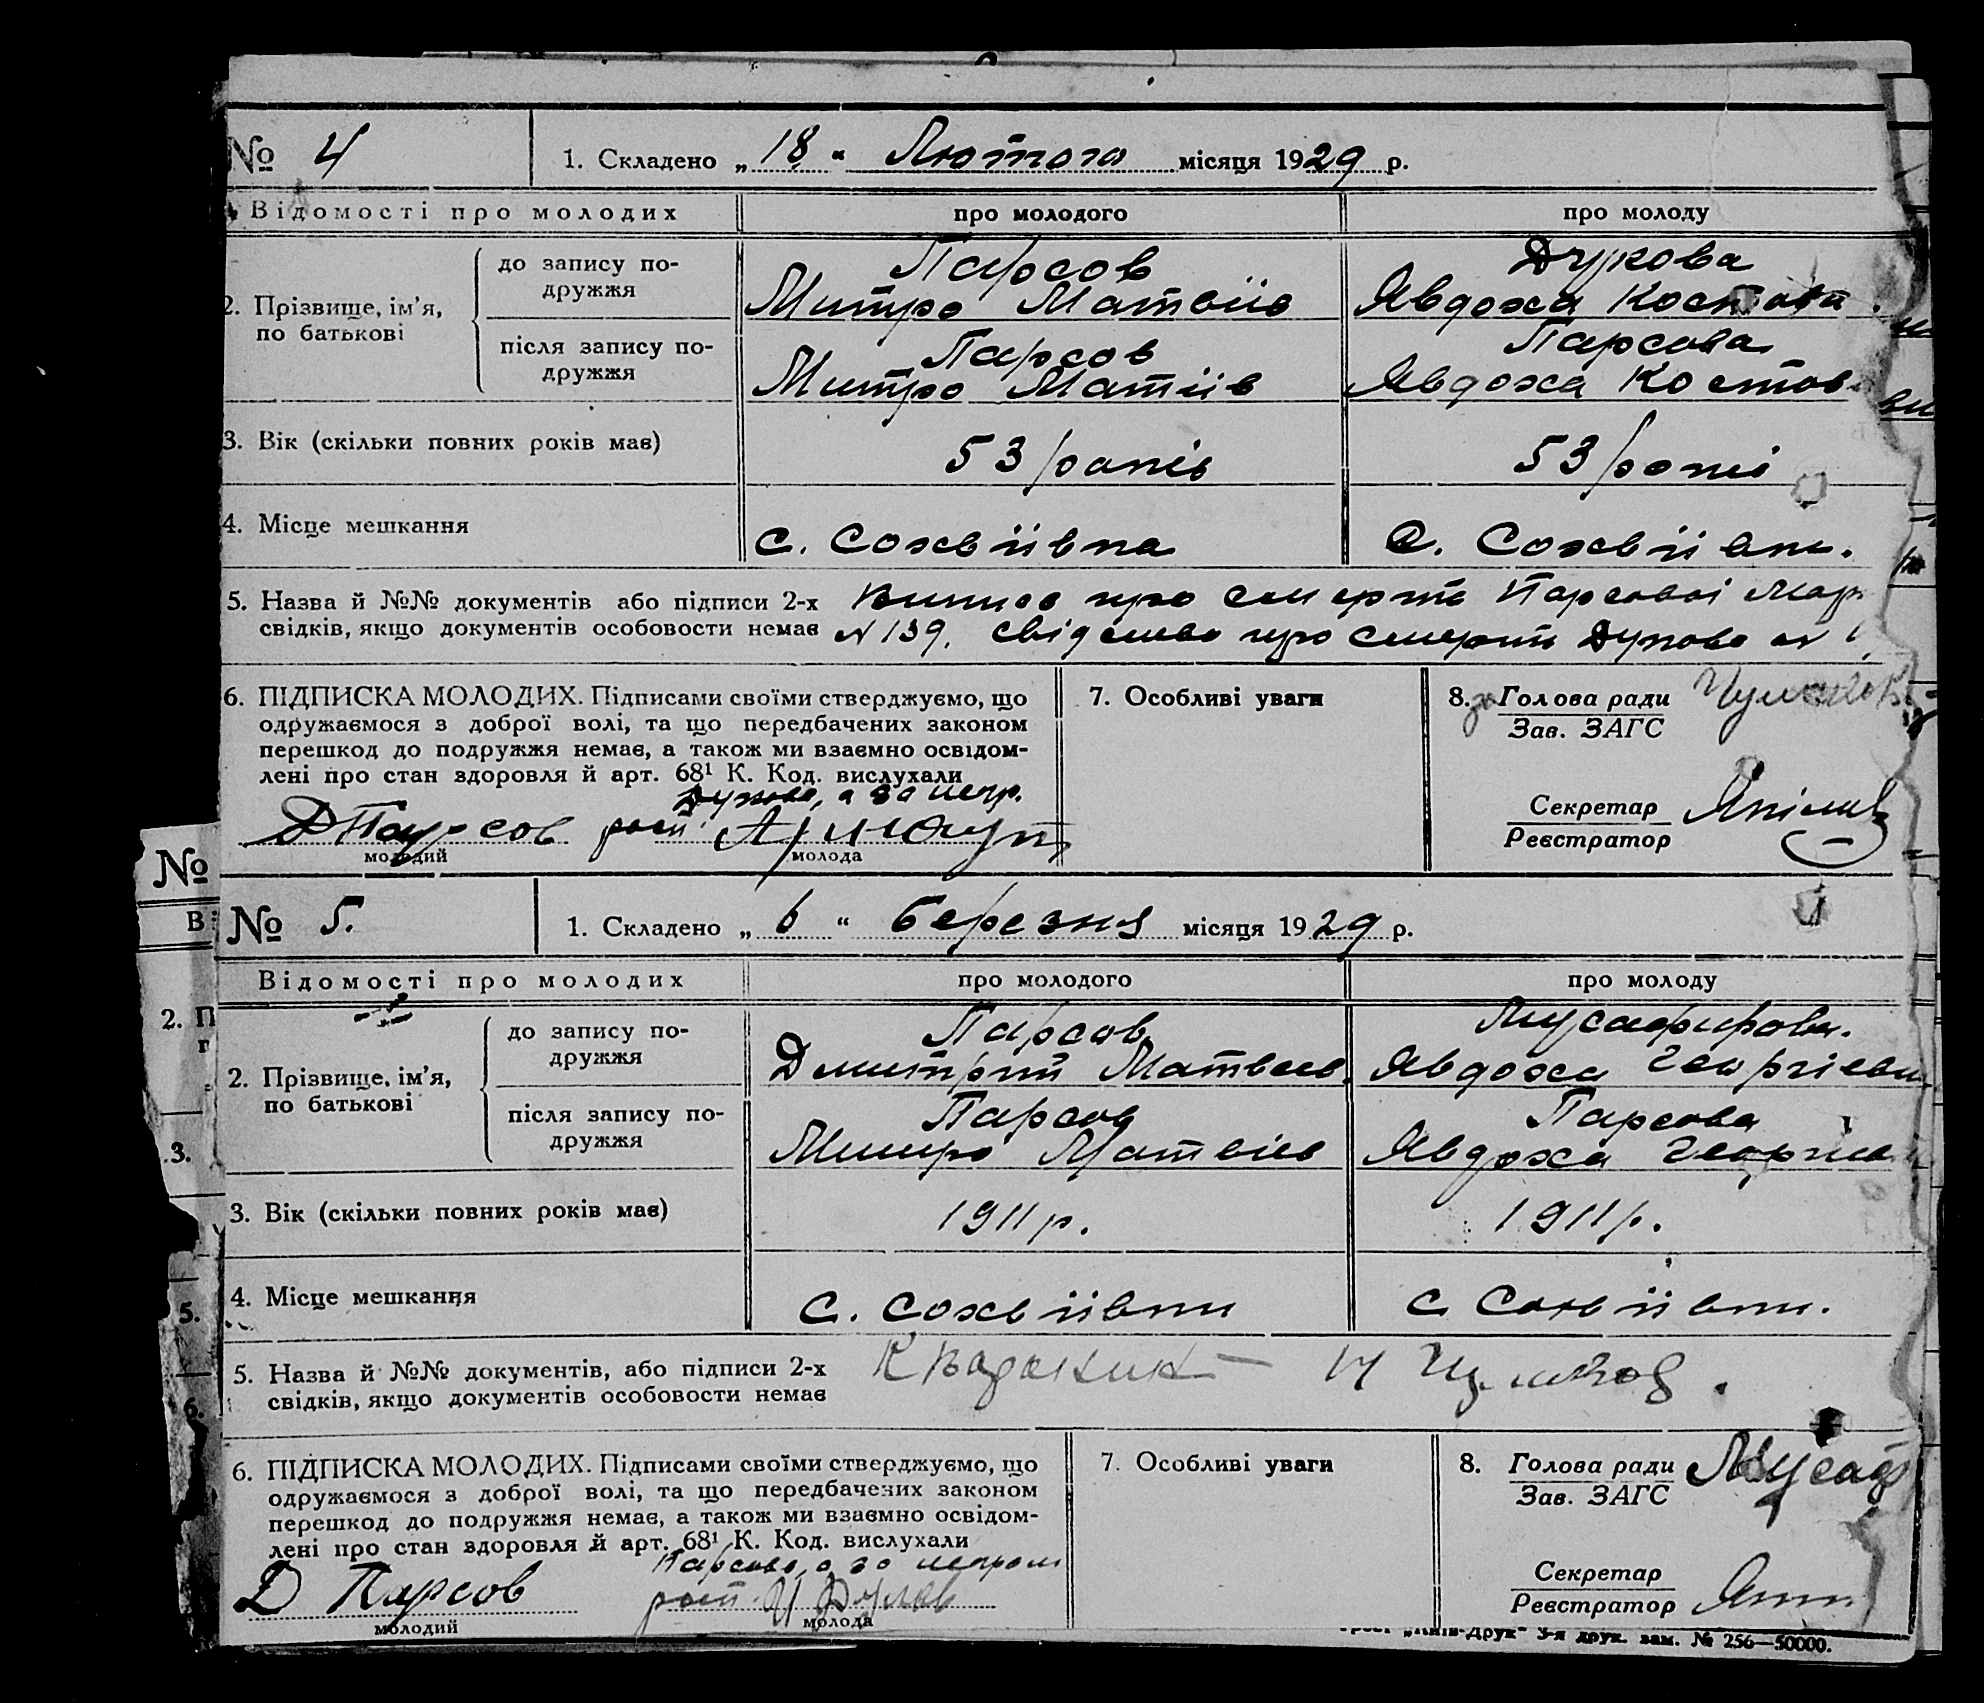 № 4 1. Складено „ 18 “ Лютого місяця 1929 р.
Відомості про молодих про молодого про молоду
2. Прізвище, ім’я, по батькові
до запису по-
дружжя
Парсов
Митро Матвіїв
Дукова
Явдоха
після запису по-
дружжя
Парсов
Митро Матіїв
Парсова
Явдоха Костов
3. Вік (скільки повних років має) 53 років 53 років
4. Місце мешкання с. Софіївка с. Софіївки.
5. Назва й №№ документів або підписи 2-х
свідків, якщо документів особовости немає
Випис про смерть Парсової
N 139. свідоцтво про смерть Дукова
6. ПІДПИСКА МОЛОДИХ. Підписами своїми стверджуємо, що
одружаємося з доброї волі, та що передбачених законом
перешкод до подружжя немає, а також ми взаємно освідом-
лені про стан здоровля й арт. 68¹ К. Код. вислухали
Дукова, а за негр.
ДПарсов
молодий молода
7. Особливі уваги
8. за Голова ради
Зав. ЗАГС
Секретар
Реєстратор
№ 5. 1. Складено „ 6 “ березня місяця 1929 р.
Відомості про молодих про молодого про молоду
2. Прізвище, ім’я,
по батькові
до запису по-
дружжя
Парсов
Дмитрий Матвеев.
Мусафирова.
Явдоха Георгіевн
після запису по-
дружжя
Парсов
Митро Матвіїв
Парсова
Явдоха Георгіев
3. Вік (скільки повних років має) 1911 р. 1911 р.
4. Місце мешкання с. Софіївки с Софіївки.
5. Назва й №№ документів, або підписи 2-х
свідків, якщо документів особовости немає
6. ПІДПИСКА МОЛОДИХ. Підписами своїми стверджуємо, що
одружаємося з доброї волі, та що передбачених законом
перешкод до подружжя немає, а також ми взаємно освідом-
лені про стан здоровля й арт. 68¹ К. Код. вислухали
Парсова, а за
Д Парсов
молодий молода
7. Особливі уваги
8. Голова ради Мусаф
Зав. ЗАГС
Секретар
Реєстратор
„Київ-Друк“ 3-я друк. зам. № 256—50000.